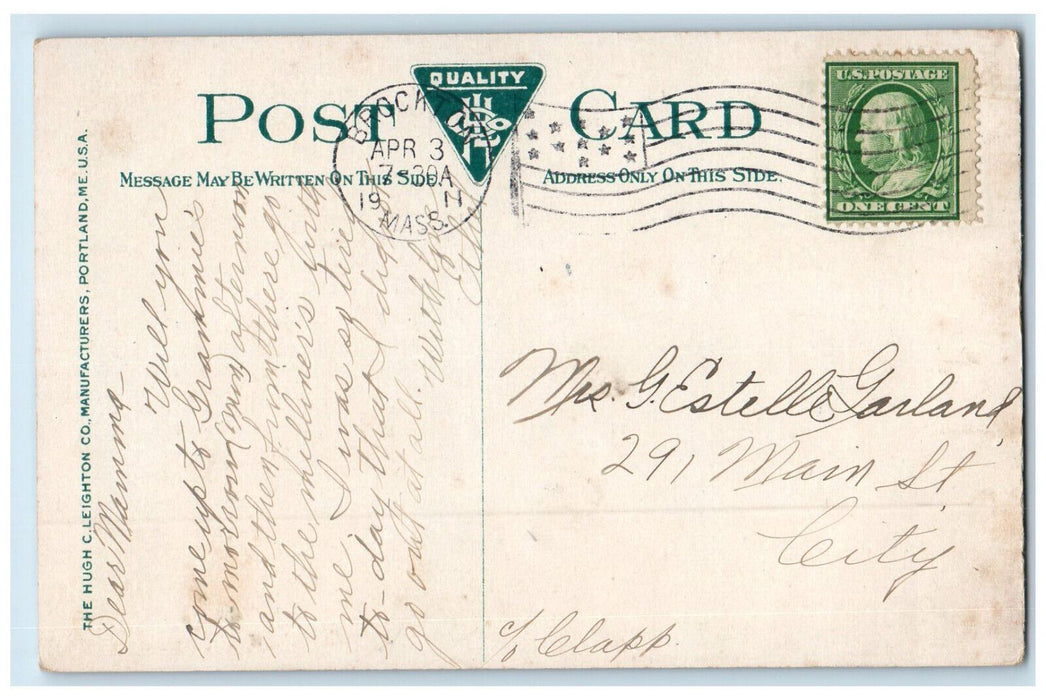 POST CARD
QUALITY
MESSAGE MAY BE WRITTEN ON THIS SIDE.
ADDRESS ONLY ON THIS SIDE.
BROCKTON
APR 3
7 30A
19 11
MASS.
U.S. POSTAGE
ONE CENT
THE HUGH C. LEIGHTON CO., MANUFACTURERS, PORTLAND, ME. U.S.A.
Dear Mamma—
Will you
come up to Grammie's
to-morrow afternoon
and then from there go
to the milliner's with
me. I was so tired
to-day that I didn't
go out at all. With love
Mrs. G. Estelle Garland
291 Main St
City
c/o Clapp.